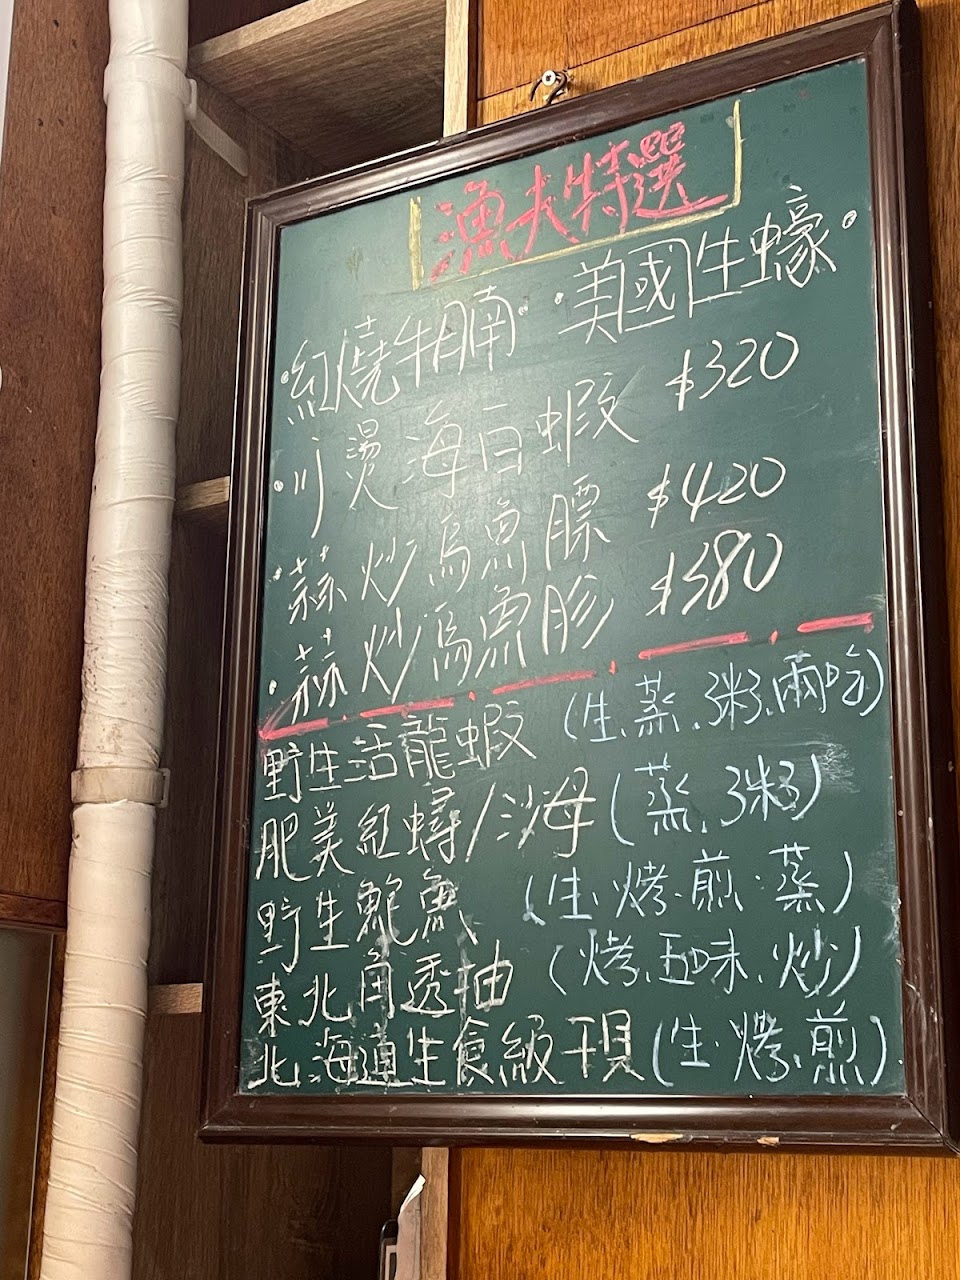 漁夫特選
·紅燒牛腩· ·美國生蠔·
·川燙海白蝦 $320
·蒜炒烏魚膘 $420
·蒜炒烏魚胗 $380
野生活龍蝦 (生、蒸、粥、兩吃)
肥美紅蟳/沙母 (蒸、粥)
野生鮑魚 (生·烤·煎·蒸)
東北角透抽 (烤、五味、炒)
北海道生食級干貝 (生·烤、煎)